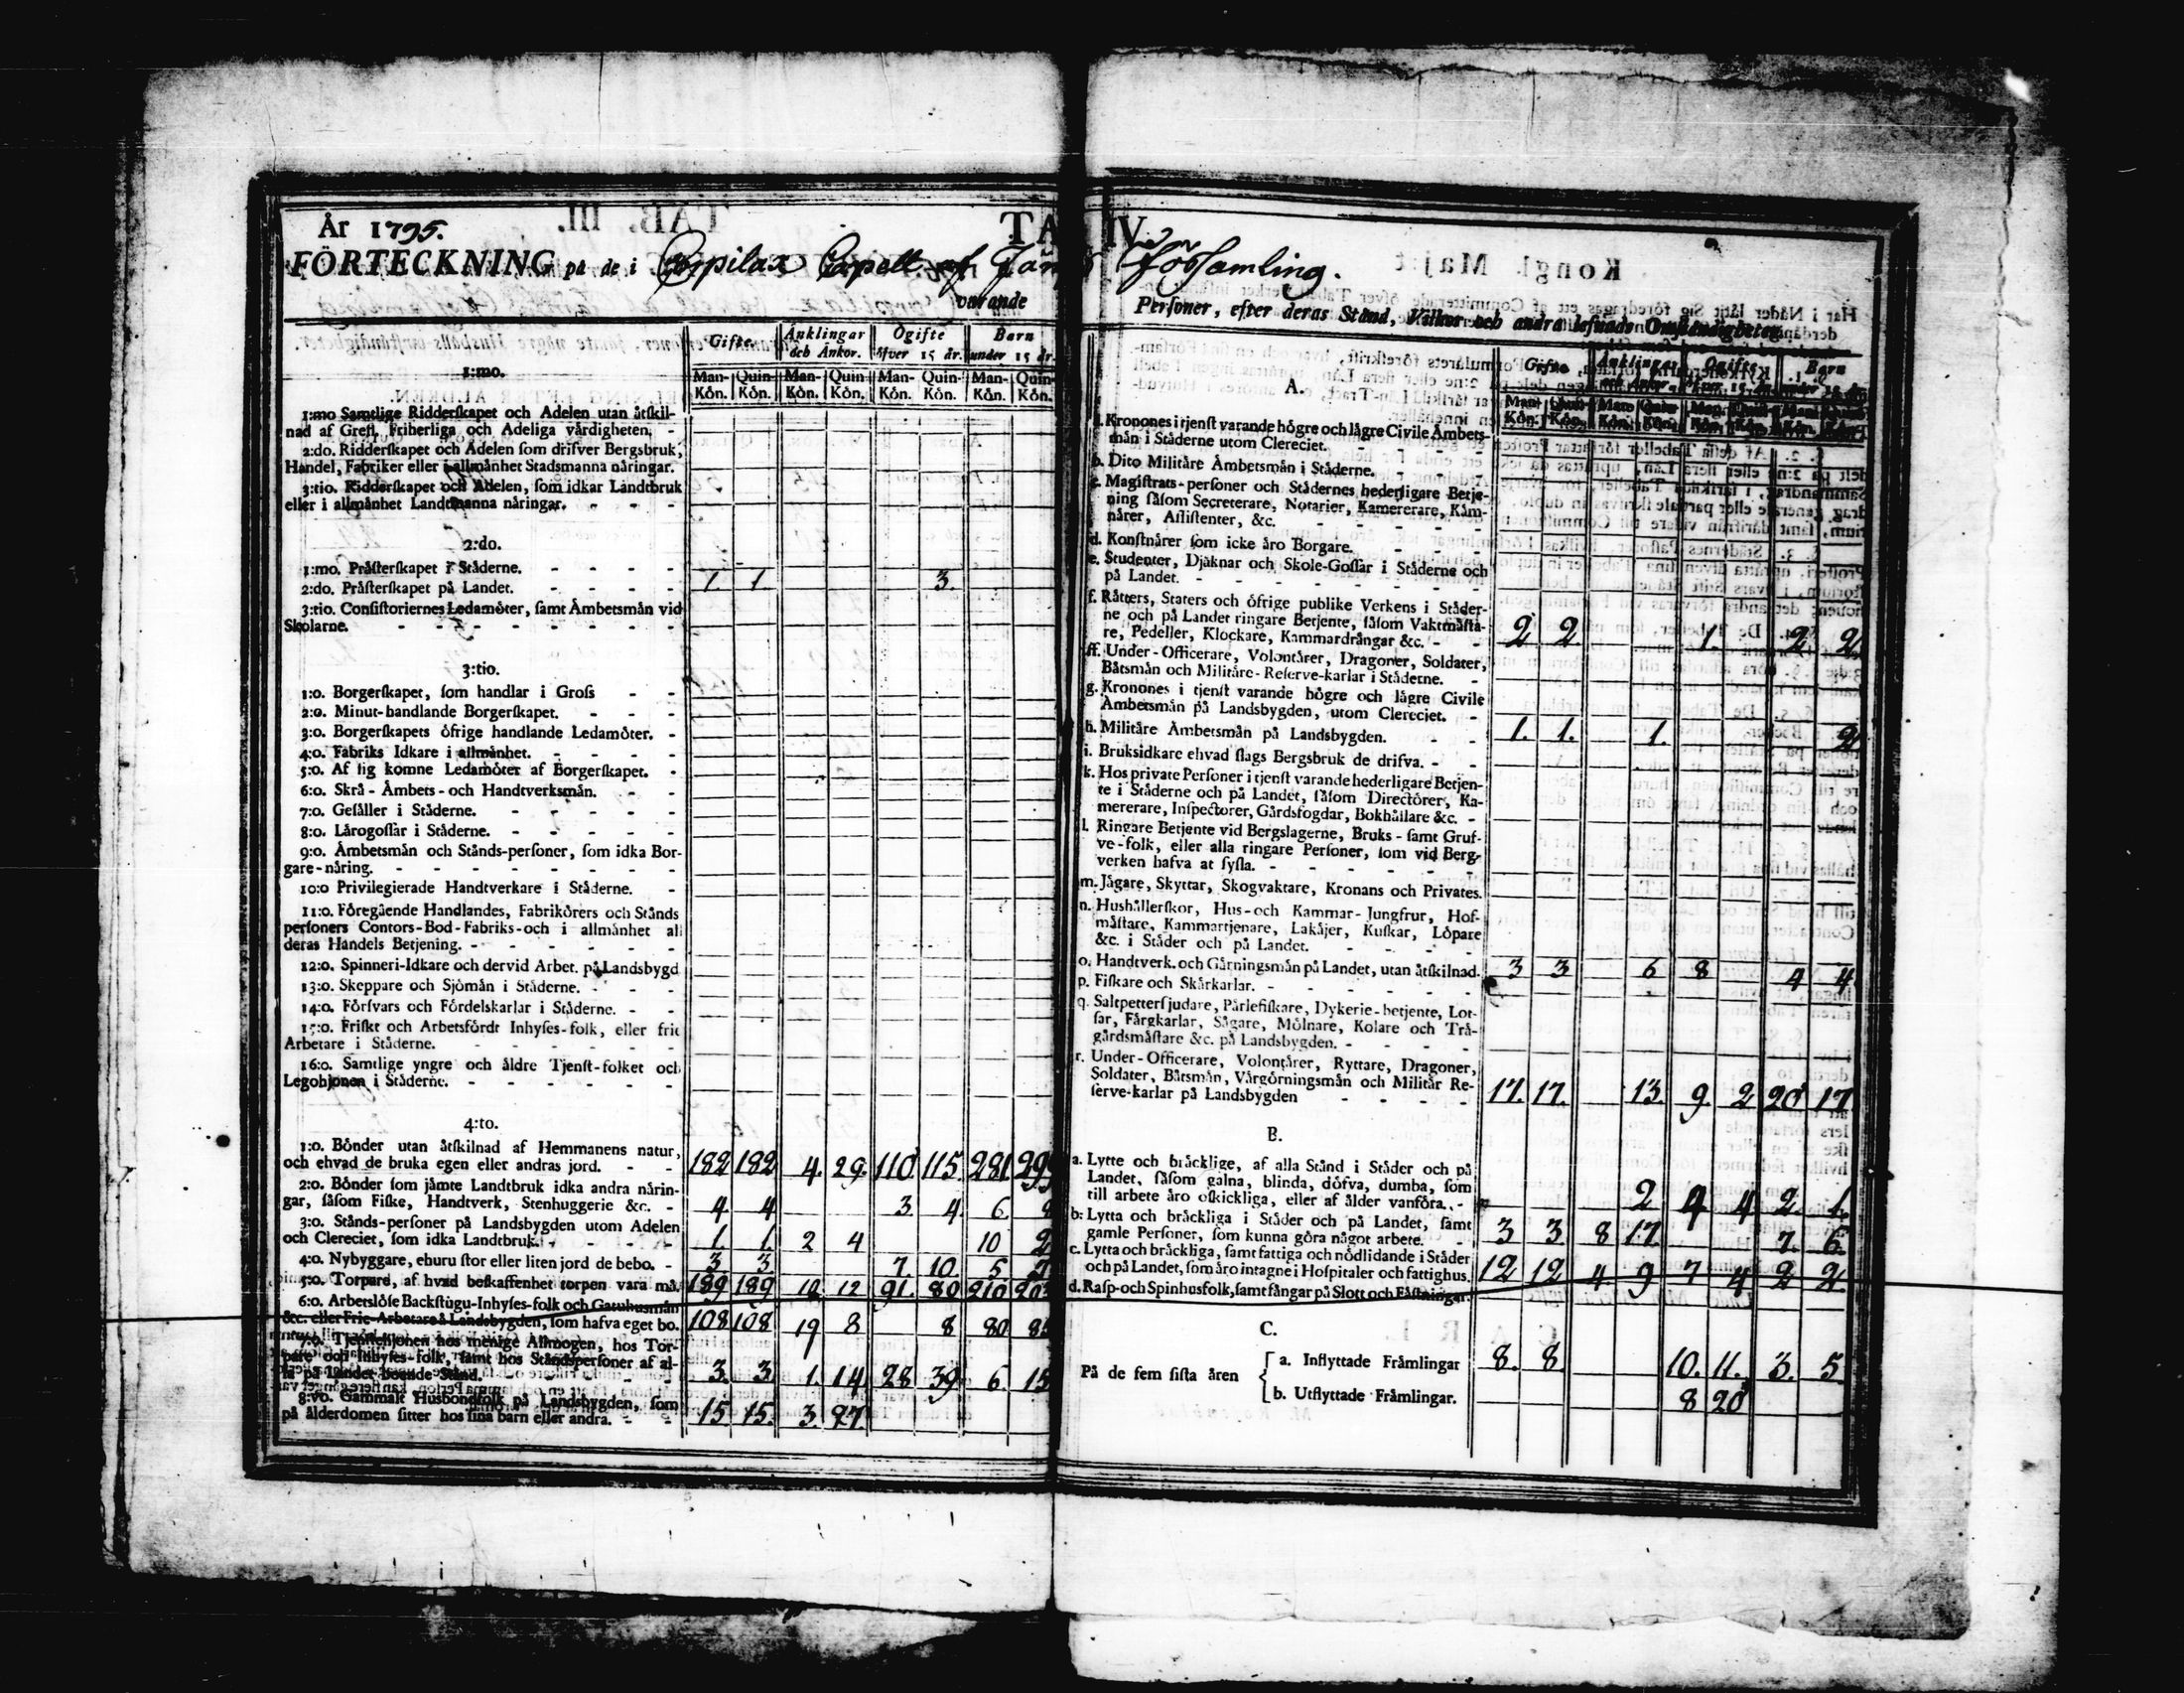 År 1795.
TAB. IV
FÖRTECKNING på de i Corpilax Capell af Församling.
varande Personer, efter deras Stånd, Vilkor och andra lefnads Omständigheter.
Gifte. Änklingar och Änkor. Ogifte öfver 15 år. Barn under 15 år.
Man-Kön. Quin-Kön. Man-Kön. Quin-Kön. Man-Kön. Quin-Kön. Man-Kön. Quin-Kön.
1:mo.
1:mo Samtlige Ridderskapet och Adelen utan åtskil-
nad af Grefl. Friherliga och Adeliga värdigheten. -
2:do. Ridderskapet och Adelen som drifver Bergsbruk,
Handel, Fabriker eller i allmänhet Stadsmanna näringar.
3:tio. Ridderskapet och Adelen, som idkar Landtbruk
eller i allmänhet Landtmanna näringar. - - -
2:do.
1:mo. Prästerskapet i Städerne. - - - -
2:do. Prästerskapet på Landet. - - - - 1. 1. 3.
3:tio. Consistoriernes Ledamöter, samt Ämbetsmän vid
Skolarne. - - - - - - -
3:tio.
1:o. Borgerskapet, som handlar i Gross - -
2:o. Minut-handlande Borgerskapet. - - -
3:o. Borgerskapets öfrige handlande Ledamöter. -
4:o. Fabriks Idkare i allmänhet. - - - -
5:o. Af sig komne Ledamöter af Borgerskapet. -
6:o. Skrå - Ämbets - och Handtverksmän. - -
7:o. Gesäller i Städerne. - - - - -
8:o. Lärogossar i Städerne. - - - - -
9:o. Ämbetsmän och Stånds-personer, som idka Bor-
gare-näring. - - - - - - -
10:o Privilegierade Handtverkare i Städerne. -
11:o. Föregående Handlandes, Fabrikörers och Stånds
personers Contors-Bod-Fabriks-och i allmänhet all
deras Handels Betjening. - - - - -
12:o. Spinneri-Idkare och dervid Arbet. på Landsbygd
13:o. Skeppare och Sjömän i Städerne. - - -
14:o. Försvars och Fördelskarlar i Städerne. - -
15:o. Friske och Arbetsfördt Inhyses-folk, eller frie
Arbetare i Städerne. - - - - - -
16:o. Samtlige yngre och äldre Tjenst-folket och
Legohjonen i Städerne. - - - - - -
4:to.
1:o. Bönder utan åtskilnad af Hemmanens natur,
och ehvad de bruka egen eller andras jord. - - 182 182 4. 29. 110 115. 281. 299
2:o. Bönder som jämte Landtbruk idka andra närin-
gar, såsom Fiske, Handtverk, Stenhuggerie &c. - 4. 4. 3. 4. 6.
3:o. Stånds-personer på Landsbygden utom Adelen
och Clereciet, som idka Landtbruk. - - - 1. 1. 2 4 10 2
4:o. Nybyggare, ehuru stor eller liten jord de bebo. - 3 3 7 10. 5
5:o. Torpare, af hvad beskaffenhet torpen vara må. 189 189 12 91. 80 210
6:o. Arbetslöse Backstugu-Inhyses-folk och Gatuhusmän
&c. eller Frie-Arbetare å Landsbygden, som hafva eget bo. 108 108 19 8 8 80
7:o. Tjenstehjonen hos menige Allmogen, hos Tor-
pare och Inhyses-folk, samt hos Ståndspersoner af al-
la på Landet boende Stånd. 3. 3. 1. 14 28 39 6. 15
8:vo. Gammalt Husbondfolk på Landsbygden, som
på ålderdomen sitter hos sina barn eller andra. - - 15 15. 3. 27.
Gifte Änklingar och Änkor. Ogifte öfver 15 år. Barn under 15 år.
Man-Kön. Quin-Kön. Man-Kön. Quin-Kön. Man-Kön. Quin-Kön. Man-Kön. Quin-Kön.
A.
a. Kronones i tjenst varande högre och lägre Civile Ämbets-
män i Städerne utom Clereciet. - - - -
b. Dito Militäre Ämbetsmän i Städerne. - - -
c. Magistrats-personer och Städernes hederligare Betje-
ning såsom Secreterare, Notarier, Kamererare, Käm-
närer, Assistenter, &c. - - - - -
d. Konstnärer som icke äro Borgare. - - -
e. Studenter, Djäknar och Skole-Gossar i Städerne och
på Landet. - - - - - - -
f. Rätters, Staters och öfrige publike Verkens i Städer-
ne och på Landet ringare Betjente, såsom Vaktmästa-
re, Pedeller, Klockare, Kammardrängar &c. - - 2 2. 1. 2 2.
ff. Under-Officerare, Volontärer, Dragoner, Soldater,
Båtsmän och Militäre-Reserve-karlar i Städerne. -
g. Kronones i tjenst varande högre och lägre Civile
Ämbetsmän på Landsbygden, utom Clereciet. -
h. Militäre Ämbetsmän på Landsbygden. - - 1. 1. 1. 2
i. Bruksidkare ehvad slags Bergsbruk de drifva. - -
k. Hos private Personer i tjenst varande hederligare Betjen-
te i Städerne och på Landet, såsom Directörer, Ka-
mererare, Inspectorer, Gårdsfogdar, Bokhållare &c. -
l. Ringare Betjente vid Bergslagerne, Bruks-samt Gruf-
ve-folk, eller alla ringare Personer, som vid Berg-
verken hafva at sysla. - - - - - -
m. Jägare, Skyttar, Skogvaktare, Kronans och Privates.
n. Hushållerskor, Hus-och Kammar-Jungfrur, Hof-
mästare, Kammartjenare, Lakäjer, Kuskar, Löpare
&c. i Städer och på Landet. - - - -
o. Handtverk. och Gärningsmän på Landet, utan åtskilnad. 3 3 6 8 4 4
p. Fiskare och Skärkarlar. - - - - - -
q. Saltpettersjudare, Pärlefiskare, Dykerie-betjente, Lot-
sar, Färgkarlar, Sågare, Mölnare, Kolare och Trä-
gårdsmästare &c. på Landsbygden. - - - -
r. Under-Officerare, Volontärer, Ryttare, Dragoner,
Soldater, Båtsmän, Vargörningsmän och Militär Re-
serve-karlar på Landsbygden - - - - 17. 17. 13. 9. 2 20 17
B.
a. Lytte och bräcklige, af alla Stånd i Städer och på
Landet, såsom galna, blinda, döfva, dumba, som
till arbete äro oskickliga, eller af ålder vanföra. - 2 4 2 1.
b. Lytta och bräckliga i Städer och på Landet, samt
gamle Personer, som kunna göra något arbete. - 3 3 8 17. 7. 6.
c. Lytta och bräckliga, samt fattiga och nödlidande i Städer
och på Landet, som äro intagne i Hospitaler och fattighus. 12 12 4 9 7 4 2 2
d. Rasp-och Spinhusfolk, samt fångar på Slott och Fästningar.
C.
På de fem sista åren
a. Inflyttade Främlingar 8. 8. 10. 11. 3. 5.
b. Utflyttade Främlingar. 8 20